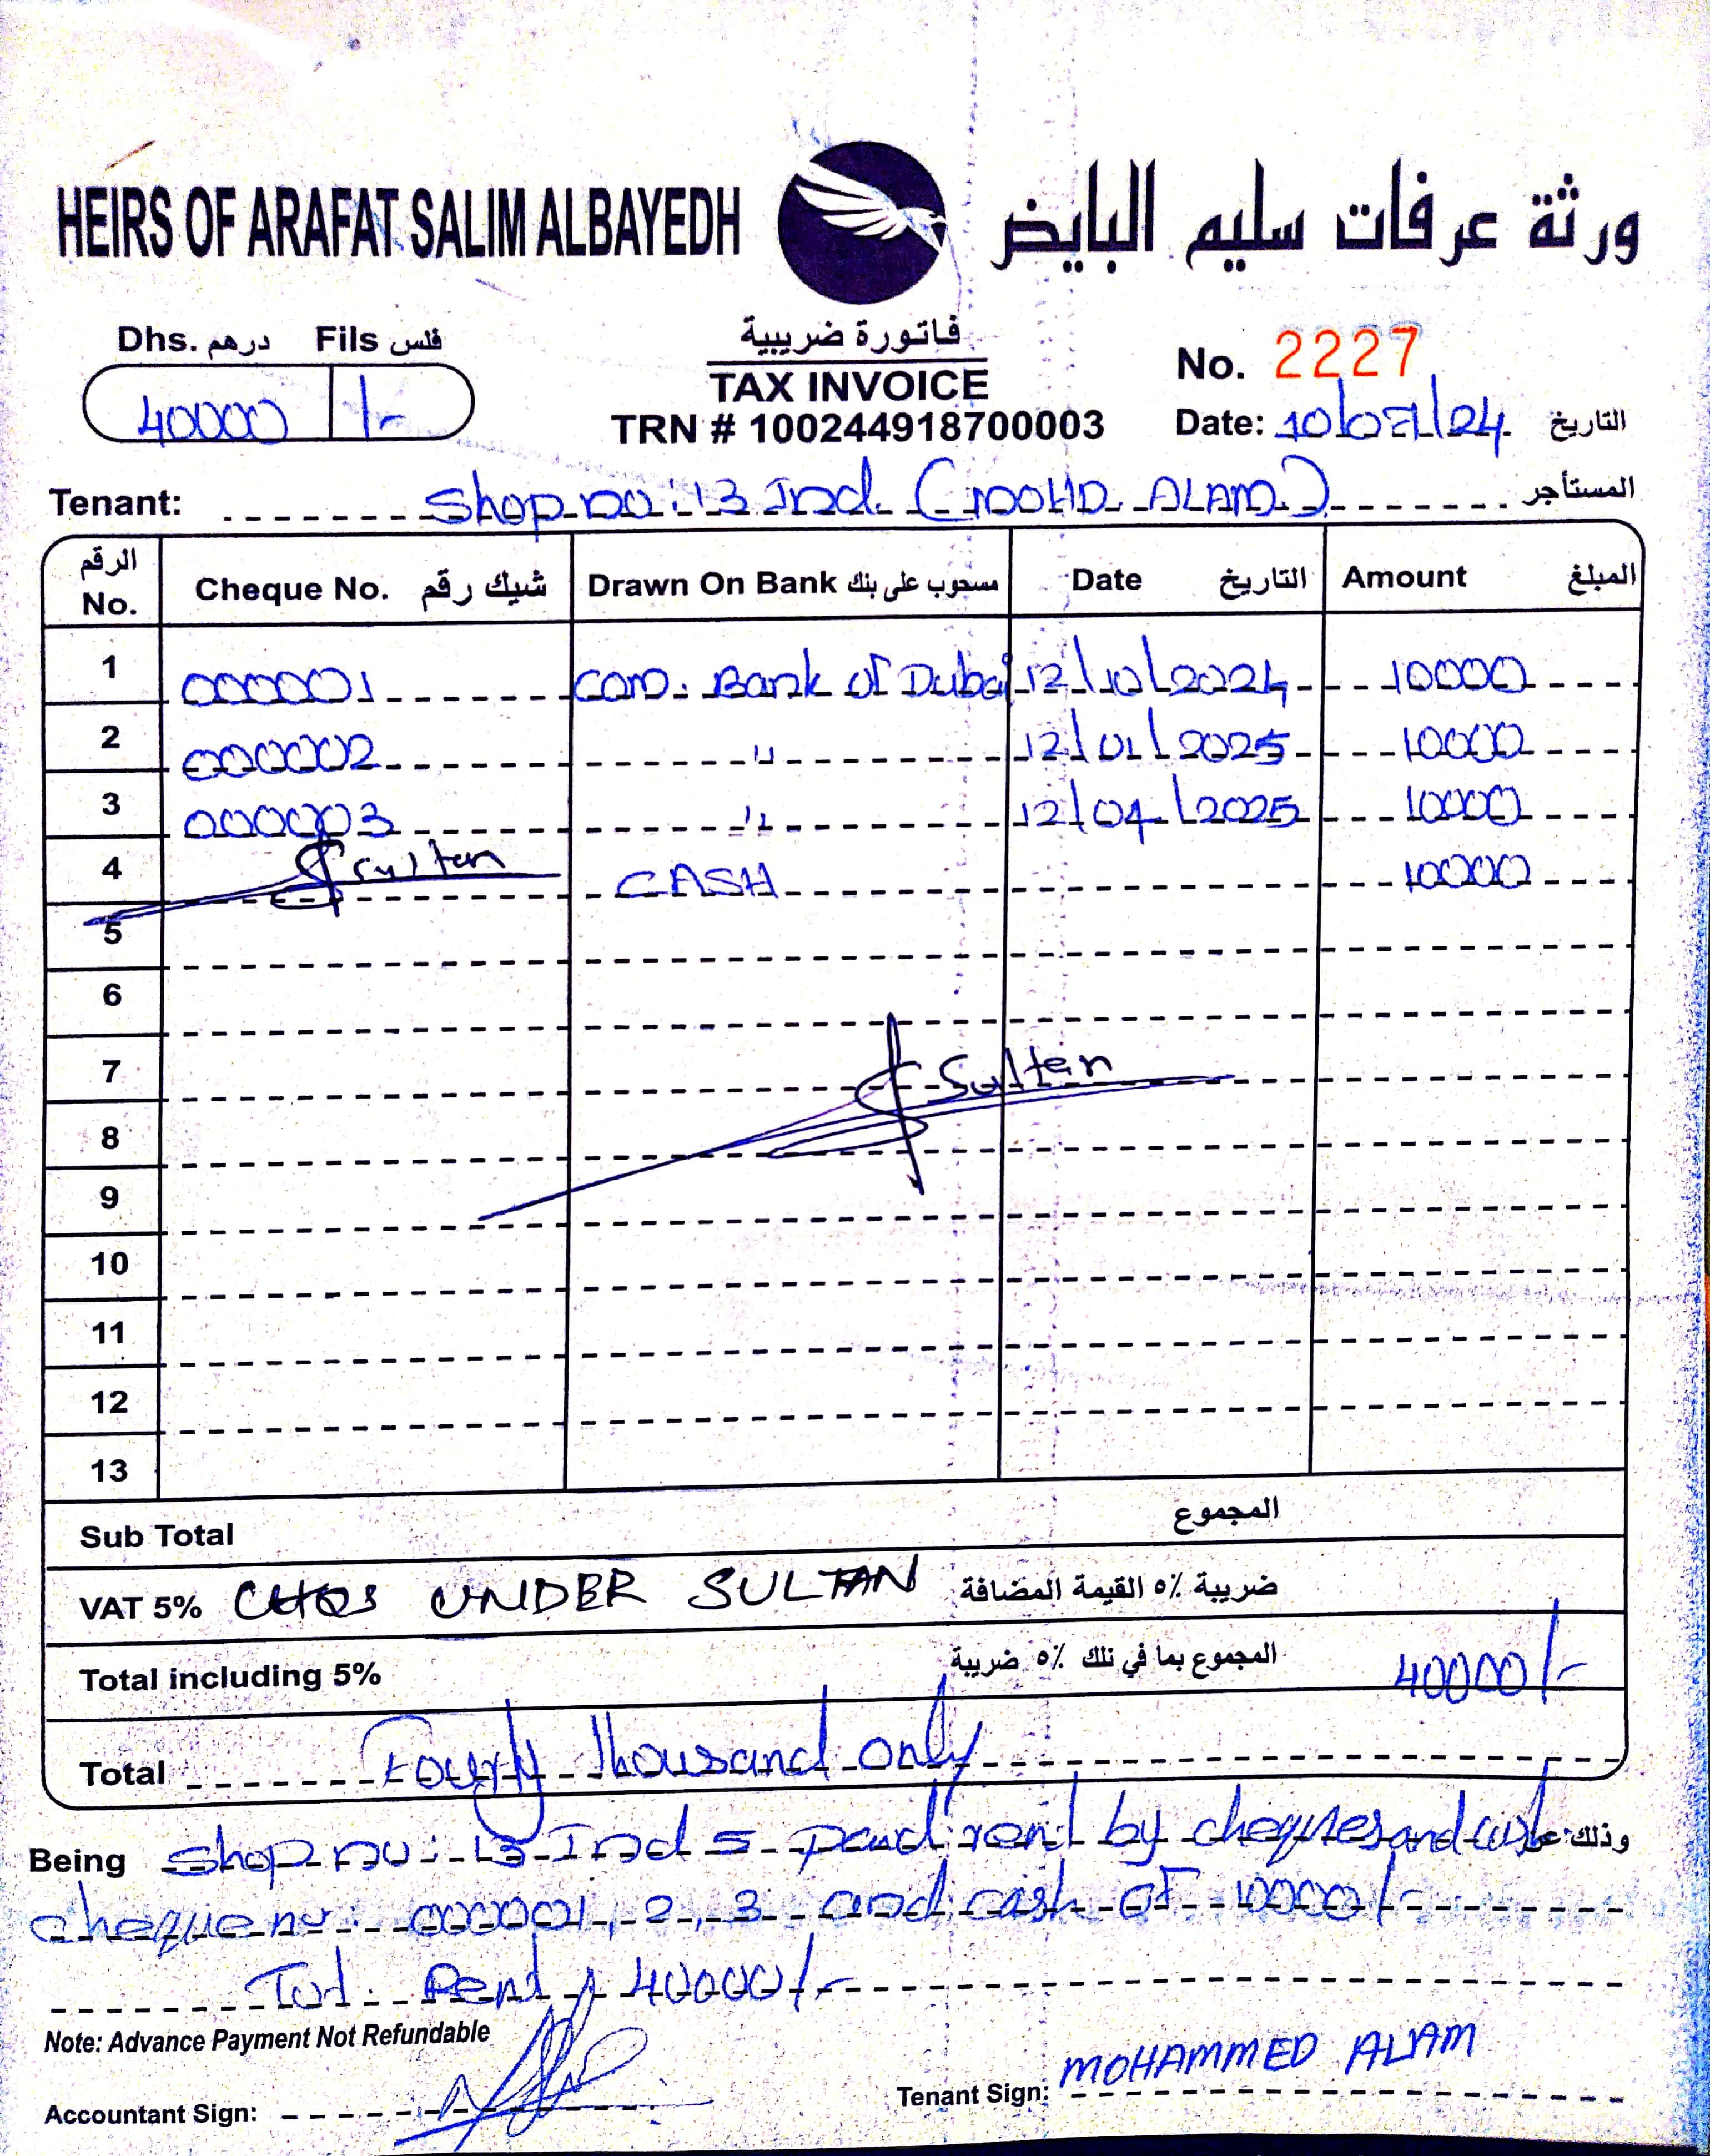 HEIRS OF ARAFAT SALIM ALBAYEDH ورثة عرفات سليم البايض
Dhs. درهم Fils فلس
40000 /-
فاتورة ضريبية
TAX INVOICE
TRN # 100244918700003
No. 2227
Date: 10/07/24 التاريخ
Tenant: Shop no: 13 Ind. (MOHD. ALAM) المستأجر
الرقم No. Cheque No. شيك رقم Drawn On Bank مسحوب على بنك Date التاريخ Amount المبلغ
1 000001 Com. Bank of Dubai 12/10/2024 10000
2 000002 " 12/01/2025 10000
3 000003 " 12/04/2025 10000
4 Sultan CASH 10000
5
6
7 Sultan
8
9
10
11
12
13
Sub Total المجموع
VAT 5% CHQS UNDER SULTAN ضريبة ٥٪ القيمة المضافة
Total including 5% المجموع بما في تلك ٥٪ ضريبة 40000/-
Total Fourty thousand only
Being Shop no: 13 Ind 5 paid rent by cheques and cash وذلك عن
cheque no: 000001, 2, 3 and cash of 10000/-
Tot. Rent 40000/-
Note: Advance Payment Not Refundable
Accountant Sign:
Tenant Sign: MOHAMMED ALAM